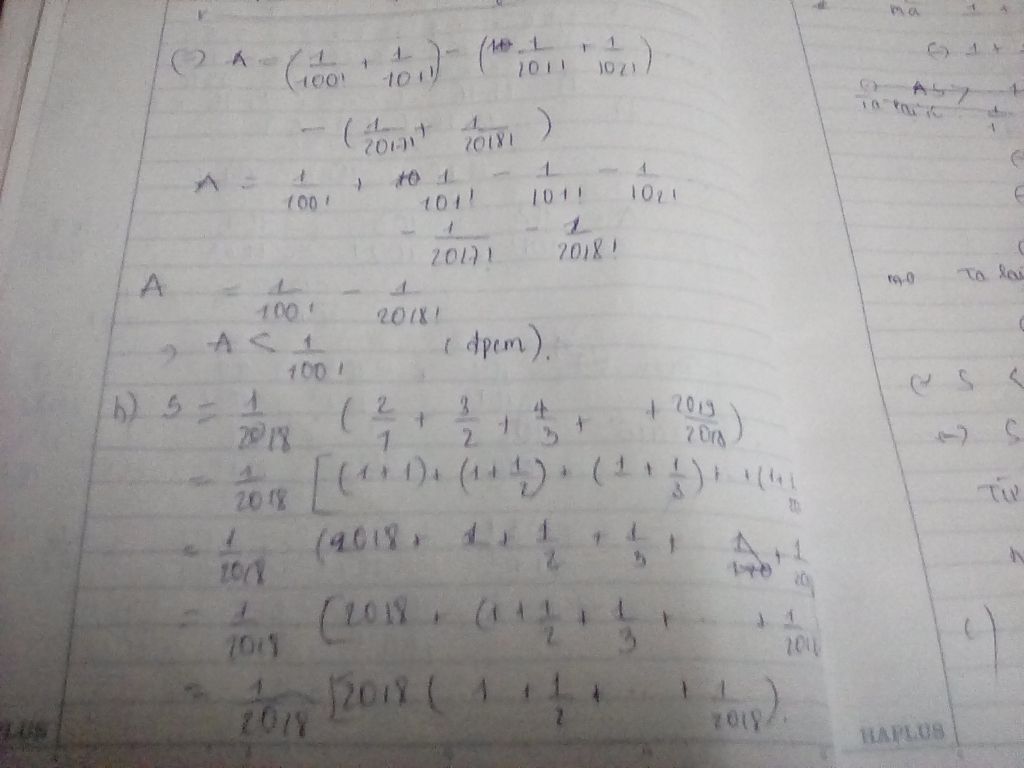 (=) A = (1/100! + 1/101!) - (1/101! + 1/102!)
- (1/2017! + 1/2018!)
A = 1/100! + 1/101! - 1/101! - 1/102!
- 1/2017! - 1/2018!
A = 1/100! - 1/2018!
→ A < 1/100! (đpcm).
b) S = 1/2018 (2/1 + 3/2 + 4/3 + + 2019/2018)
= 1/2018 [(1+1) + (1+1/2) + (1+1/3) + + (1+1
= 1/2018 (2018 + 1 + 1/2 + 1/3 + + 1/20
= 1/2018 (2018 + (1 + 1/2 + 1/3 + ... + 1/2018
= 1/2018 [2018 ( 1 + 1/2 + + 1/2018).
ma 1 +
(=) 1 +
Ta lại
(=) S <
(=) S
HAPLUS
PLUS